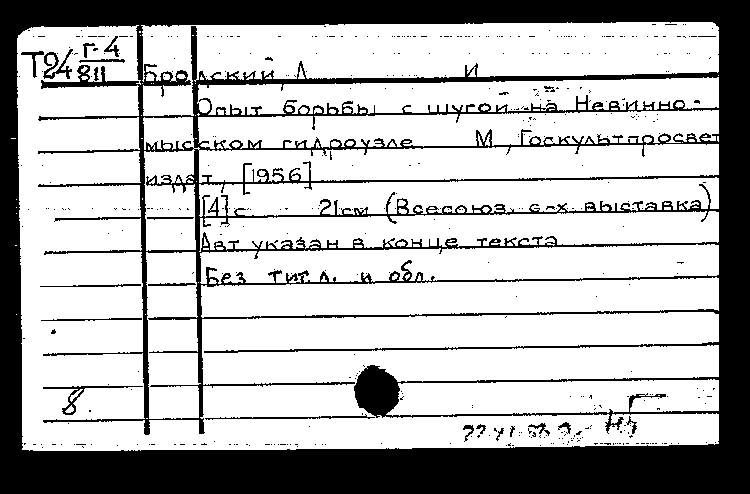 Т24 г-4
811
Бродский, Л И
Опыт борьбы с шугой на Невинно-
мысском гидроузле М, Госкультпросвет
издат, [1956]
[4] с 21см (Всесоюз. с-х выставка)
Авт указан в конце текста
Без тит. л. и обл.
8.